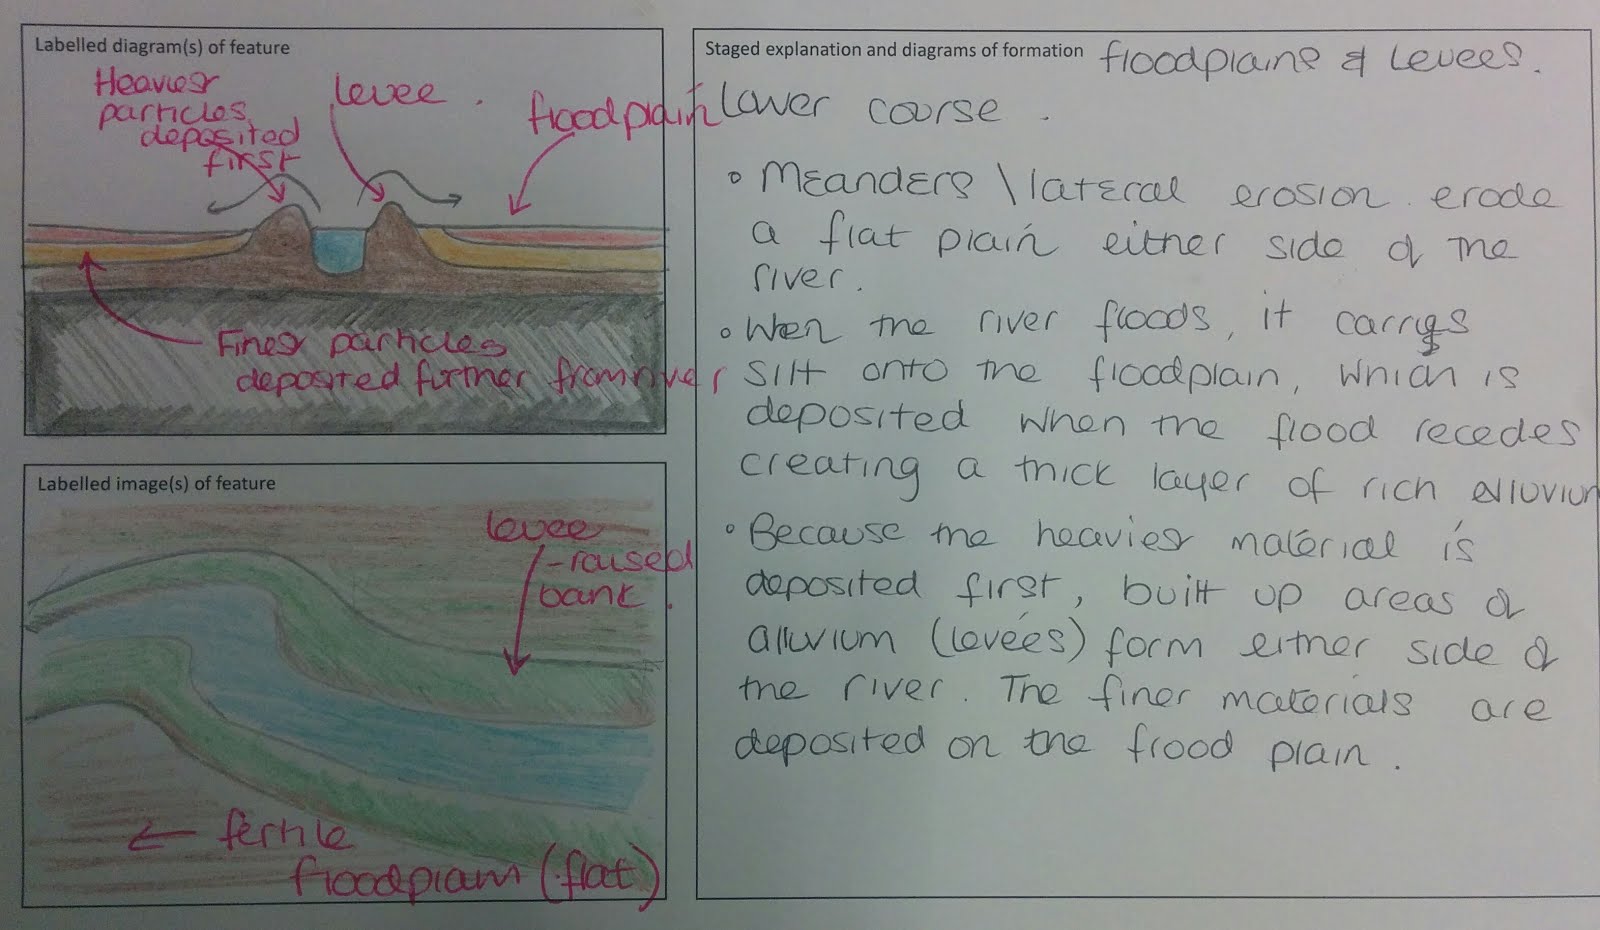 Labelled diagram(s) of feature
Heavier
particles
deposited
first
levee.
floodplain
Finer particles
deposited further from river
Labelled image(s) of feature
levee
-raised
bank.
← fertile
floodplain (flat)
Staged explanation and diagrams of formation floodplains & Levees.
Lower course.
• Meanders \ lateral erosion. erode
a flat plain either side of the
river.
• When the river floods, it carrys
silt onto the floodplain, which is
deposited when the flood recedes
creating a thick layer of rich alluvium
• Because the heavier material is
deposited first, built up areas of
alluvium (levées) form either side of
the river. The finer materials are
deposited on the flood plain.